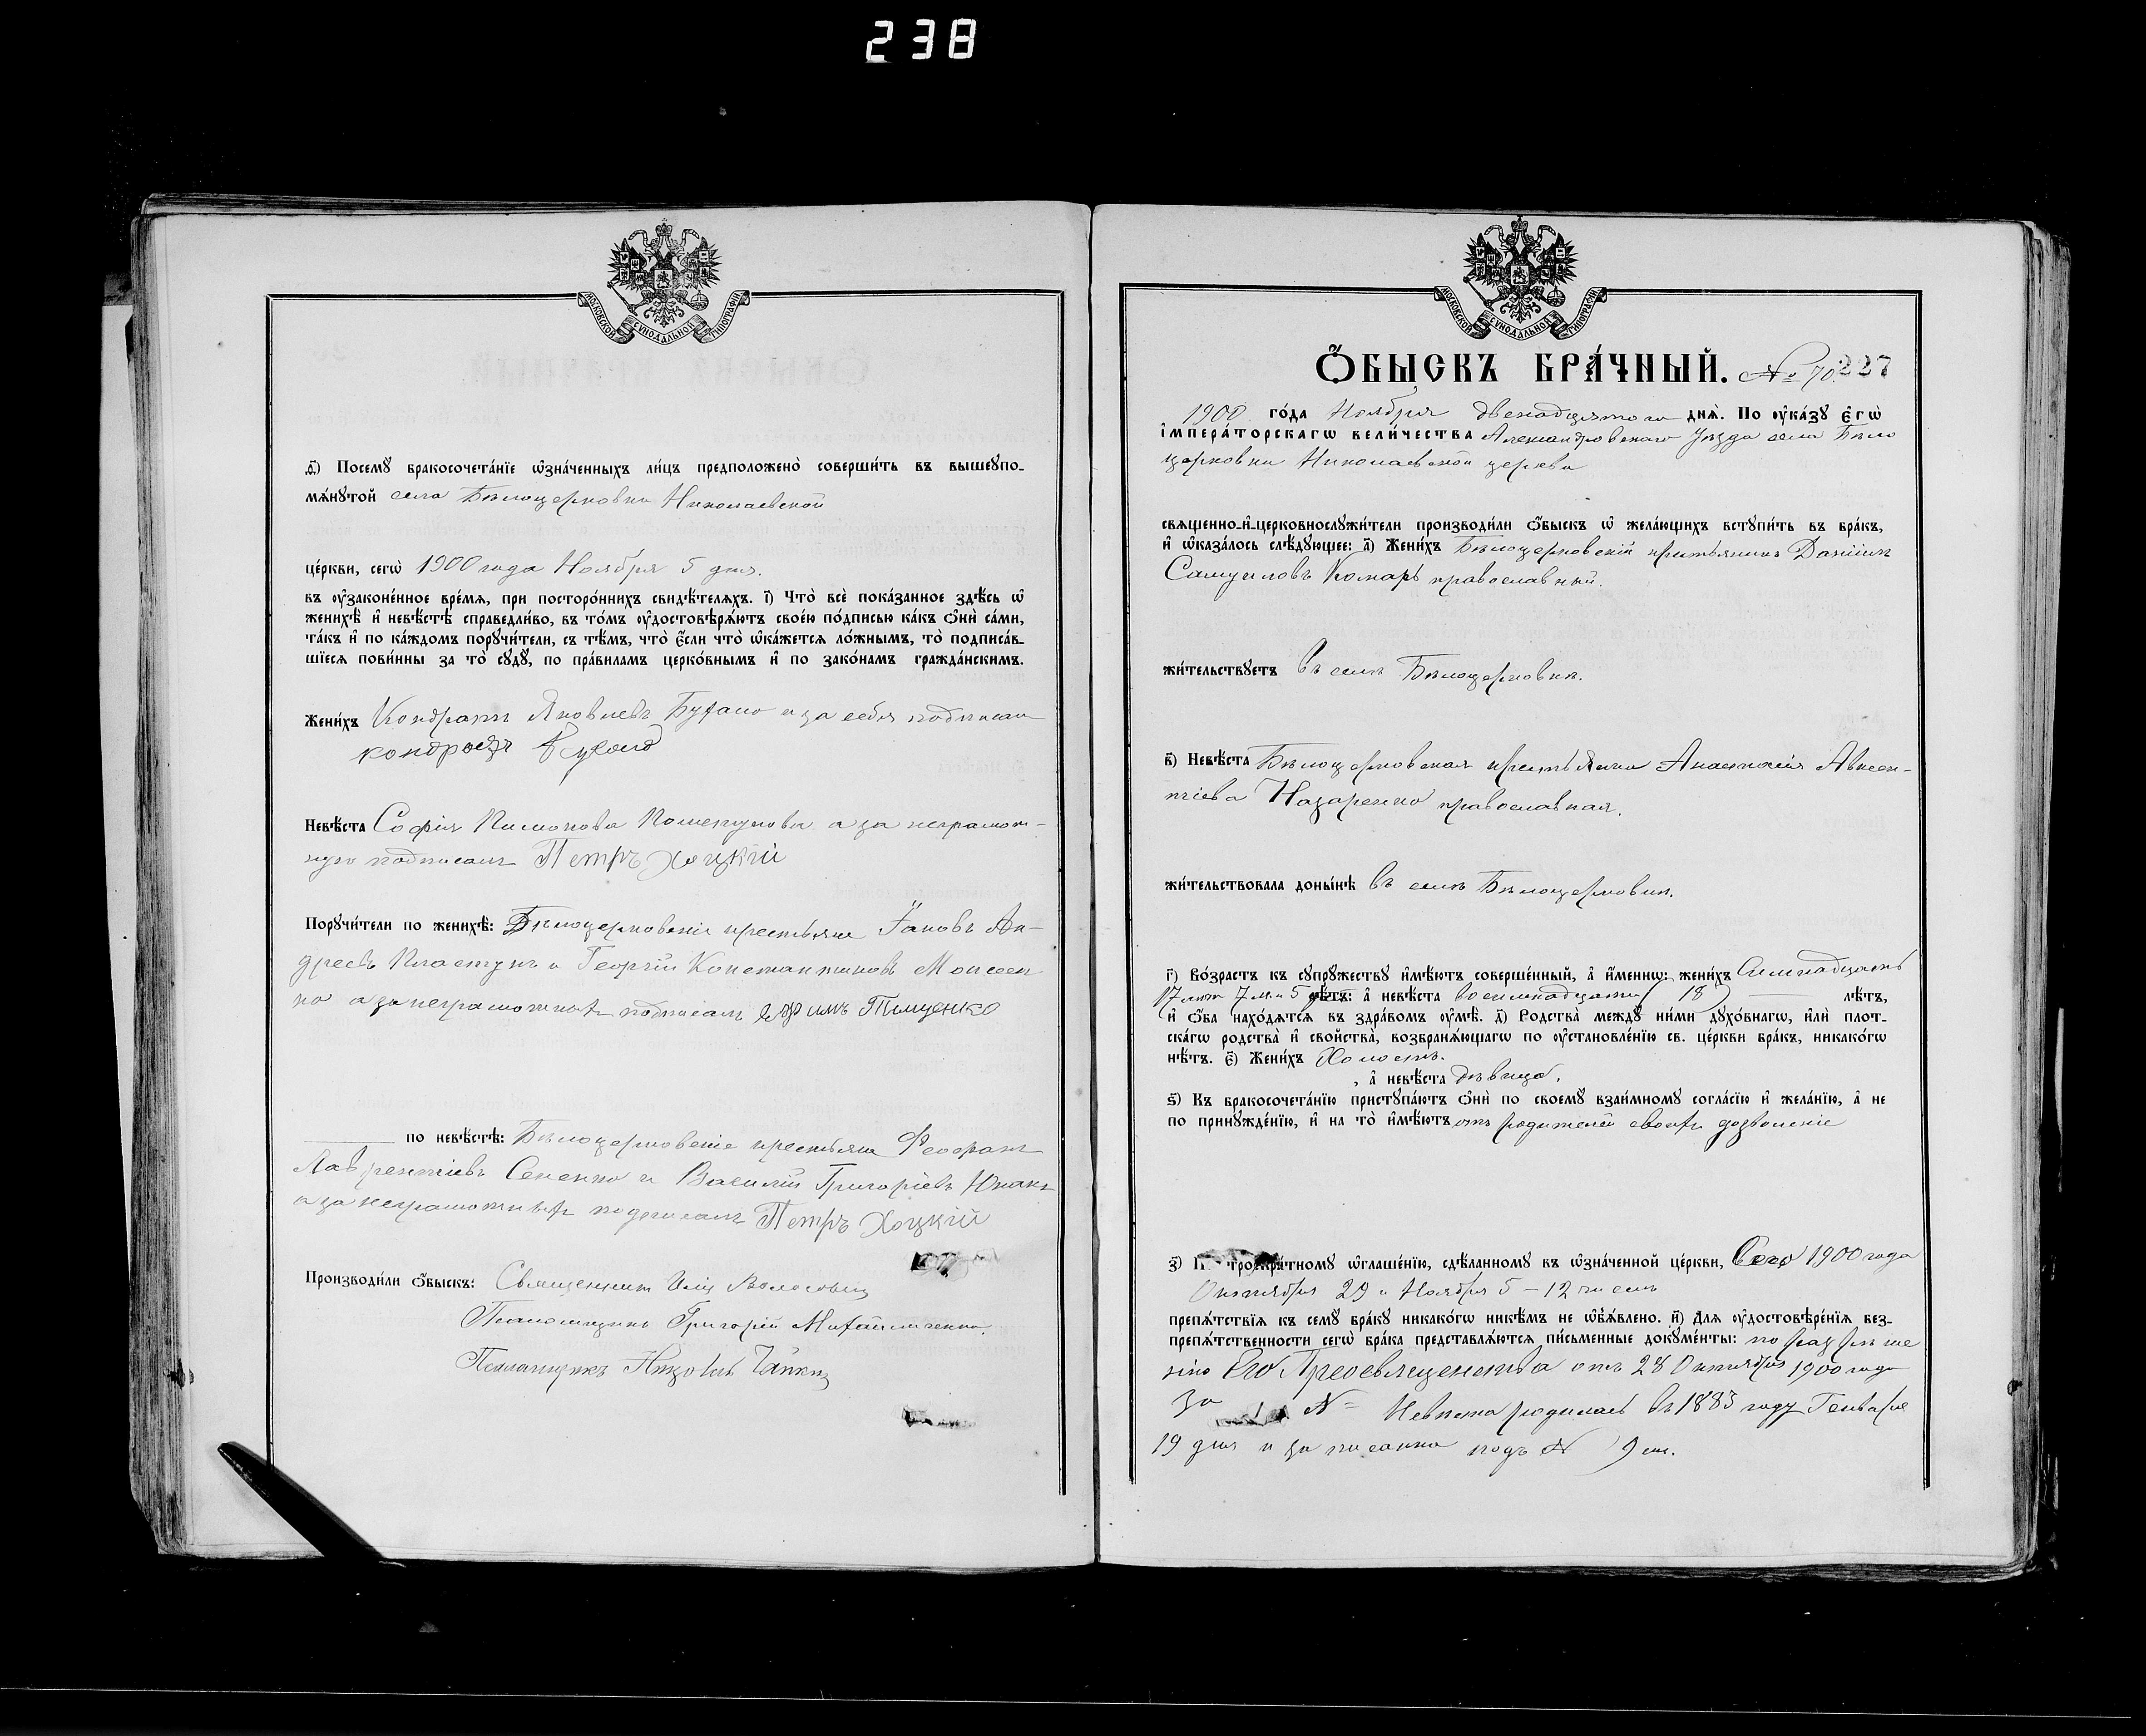 238
МОСКОВСКОЙ СѴНОДАЛЬНОЙ ТИПОГРАФІИ
д҃і) Посемꙋ бракосочета́нїе ѡ҆зна́ченныхъ ли́цъ предположено̀ соверши́ть въ вышеꙋпо-
мѧ́нꙋтой села Бѣлоцерковки Николаевской
це́ркви, сегѡ̀ 1900 года Ноября 5 дня.
въ ᲂу҆законе́нное вре́мѧ, при посторо́ннихъ свидѣ́телѧхъ. і҃) Что̀ всѐ пока́занное здѣ́сь ѡ҆
женихѣ̀ и҆ невѣ́стѣ справедли́во, въ то́мъ ᲂу҆достовѣрѧ́ютъ свое́ю по́дписью ка́къ ѻ҆нѝ са́ми,
та́къ и҆ по ка́ждомъ порꙋчи́тели, съ тѣ́мъ, что̀ є҆́сли что̀ ѡ҆ка́жетсѧ ло́жнымъ, то̀ подписа́в-
шїесѧ пови́нны за то̀ сꙋдꙋ̀, по пра́виламъ церко́внымъ и҆ по зако́намъ гражда́нскимъ.
Жени́хъ Кондратъ Яковлевъ а за себя подписал
кондратъ
Невѣ́ста Софія Пимонова а за неграмот-
ную подписалъ Петръ Хоцкій
Порꙋчи́тели по женихѣ̀: Бѣлоцерковскіе крестьяне Іаковъ Ан-
дреевъ Пластунъ и Георгій Константиновъ Моисеен
ко а за неграмотныхъ подписалъ Ефимъ Тищенко
по невѣ́стѣ: Бѣлоцерковскіе крестьяне
Лаврентіевъ Сененко и Василій Григоріевъ
а за неграмотныхъ подписалъ Петръ Хоцкій
Производи́ли ѻ҆́быскъ: Священникъ Илія
Псаломщикъ Григорій Михайличенко.
Псаломщикъ Чайка
МОСКОВСКОЙ СѴНОДАЛЬНОЙ ТИПОГРАФІИ
Ѻ҆́БЫСКЪ БРА́ЧНЫЙ. № 70 227
1900 го́да Ноября двенадцятого днѧ̀. По ᲂу҆ка́зꙋ Є҆гѡ̀
И҆МПЕРА́ТОРСКАГѠ ВЕЛИ́ЧЕСТВА Александровскаго Уѣзда села Бѣло
церковки Николаевской церкви
свѧщенно-и҆-церковнослꙋжи́тели производи́ли ѻ҆́быскъ ѡ҆ жела́ющихъ встꙋпи́ть въ бра́къ,
и҆ ѡ҆каза́лось слѣ́дꙋющее: а҃) Жени́хъ Бѣлоцерковскій крестьянинъ Даніилъ
Самуиловъ Комаръ православный.
жи́тельствꙋетъ въ селѣ Бѣлоцерковкѣ.
в҃) Невѣ́ста Бѣлоцерковская крестьянка Анастасія Авксен-
тіева Назаренко православная.
жи́тельствовала доны́нѣ въ селѣ Бѣлоцерковкѣ.
г҃) Во́зрастъ къ сꙋпрꙋ́жествꙋ и҆мѣ́ютъ соверше́нный, а҆ и҆́менно: жени́хъ Семнадцать
17 лѣтъ 7 м. и 5 лѣ́тъ: а҆ невѣ́ста восемнадцати (18) лѣ́тъ,
и҆ ѻ҆́ба нахо́дѧтсѧ въ здра́вомъ ᲂу҆мѣ̀. д҃) Родства̀ междꙋ̀ ни́ми дꙋхо́внагѡ, и҆лѝ плот-
ска́гѡ родства̀ и҆ сво́йства, возбранѧ́ющагѡ по ᲂу҆становле́нїю св. це́ркви бра́къ, никако́гѡ
нѣ́тъ. є҃) Жени́хъ Холостъ.
, а҆ невѣ́ста дѣвица.
ѕ҃) Къ бракосочета́нїю пристꙋпа́ютъ ѻ҆нѝ по своемꙋ̀ взаи́мномꙋ согла́сїю и҆ жела́нїю, а҆ не
по принꙋжде́нїю, и҆ на то̀ и҆мѣ́ютъ отъ родителей своихъ дозволеніе
з҃) П трокра́тномꙋ ѡ҆глаше́нїю, сдѣ́ланномꙋ въ ѡ҆зна́ченной це́ркви, Сего 1900 года
Октября 29 и Ноября 5 – 12 числъ
препѧ́тствїѧ къ семꙋ̀ бра́кꙋ никако́гѡ никѣ́мъ не ѡ҆б̾ѧ́влено. и҃) Длѧ ᲂу҆достовѣре́нїѧ без-
препѧ́тственности сегѡ̀ бра́ка представлѧ́ютсѧ пи́сьменные докꙋме́нты: по разрѣше
нію Его Преосвященства отъ 28 Октября 1900 года
за № Невѣста родилась въ 1883 году Генваря
19 дня и записанна подъ №